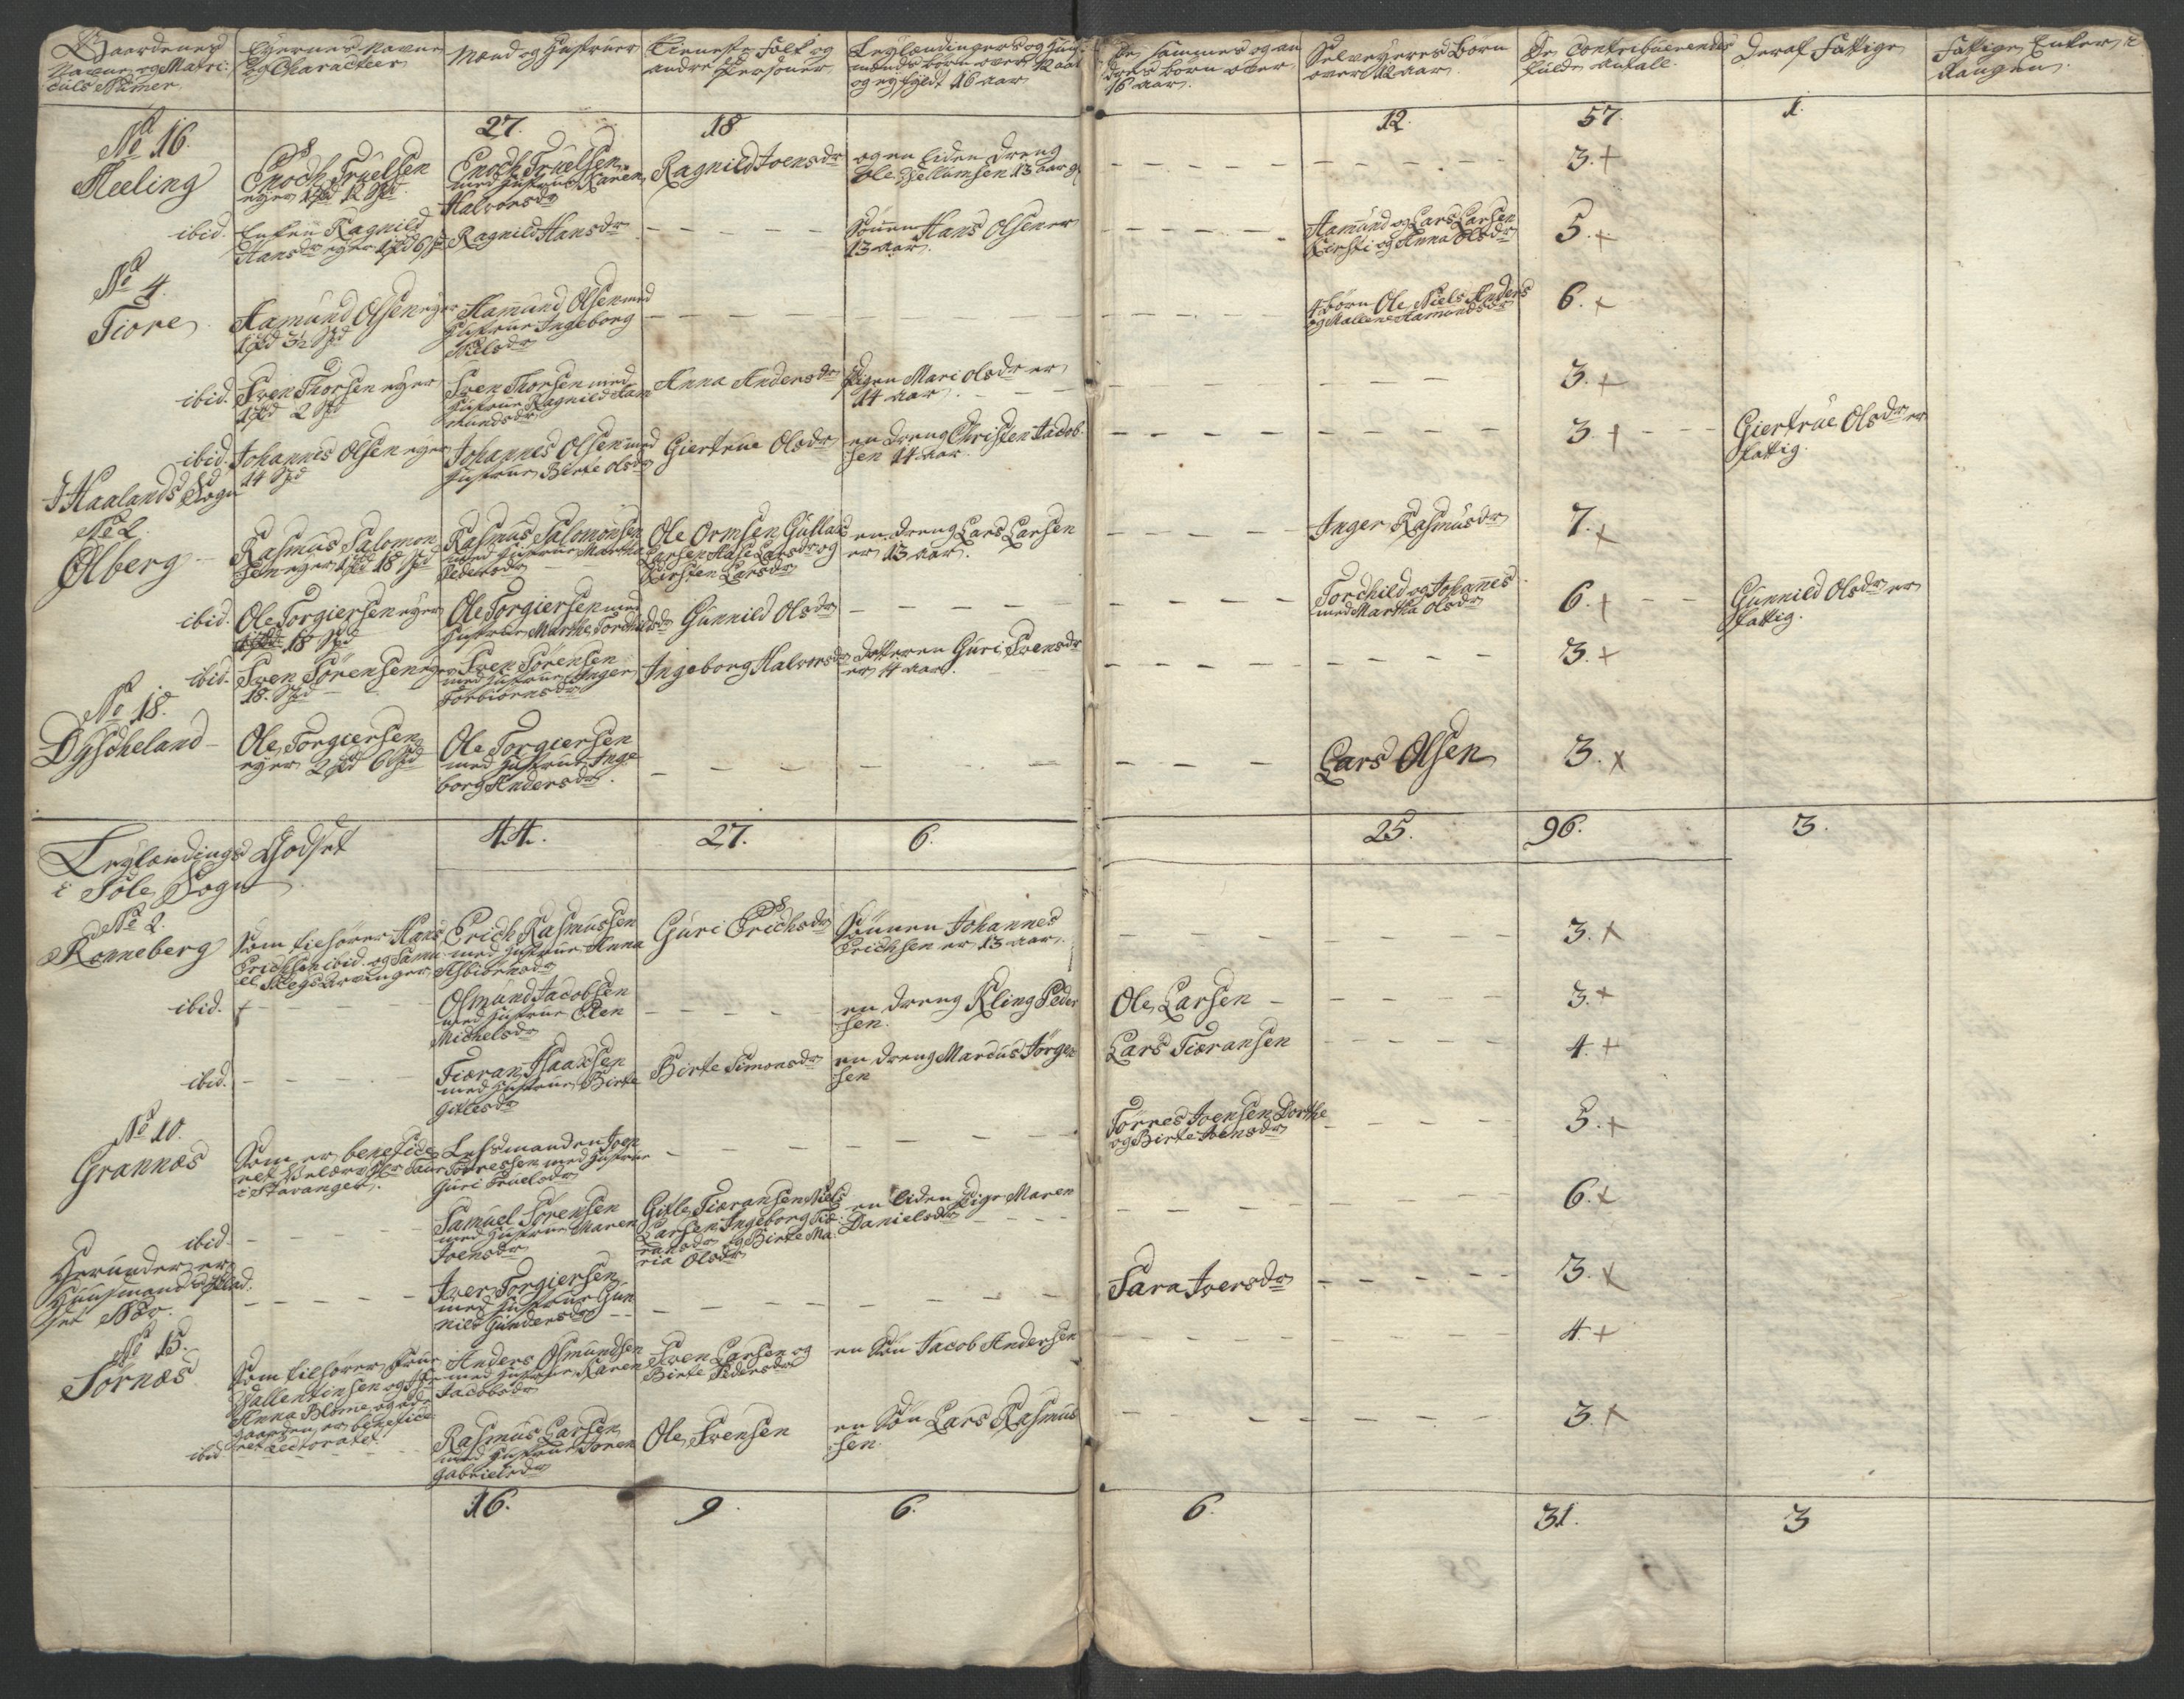 Gaardenes
Navne og Matri:
culs Numer.
Eyernes Navne
og Characteer
Mænd og Hustruer
Tieneste Folk og
andre Personer
Leylændingers og Huus
mænds børn over 12 aar
og ey fyldt 16 aar
De sammes og an
dres børn over
16 aar.
Selveyeres Børn
over 12 aar.
De Contribuerendes
fulde Antall.
Deraf Fattige
Fattige Enker
27.
18
12.
57.
1.
No 16.
Meeling
Enoch Truelsen
Enoch Truelsen
med Hustrue Karen
Halvorsdr
Ragnild Joensdr
og en liden dreng
13 aar gl
3. +
ibid.
Enken Ragnild
Hansdr eyer
Ragnild Hansdr
Sönnen Hans Olsen er
13 aar.
Aamund og Lars Larsen
Kirsti og Anna Olsdr
5. +
No 4.
Tiore
Aamund Olsen eyer
Aamund Olsen med
Hustrue Ingeborg
Nielsdr
4 børn Ole Niels Anders
og Mallene Aamundsdr
6. +
ibid.
Sven Thorsen eyer
Sven Thorsen med
Hustrue Ragnild Aam
mundsdr
Anna Andersdr
Pigen Mari Olsdr er
14 aar.
3. +
ibid.
Johannes Olsen eyer
Johannes Olsen med
Hustrue Birte Olsdr
Giertrue Olsdr
en dreng Christen Jacob
sen 14 aar.
3. +
Giertrue Olsdr er
fattig.
I Haalands Sogn
No 2.
Ølberg
Rasmus Salomon
sen eyer
Rasmus Salomonsen
med Hustrue Martha
Pedersdr
Ole Ormsen Gullac
Larsen Aase Larsdr og
Kirsten Larsdr
en dreng Lars Larsen
er 13 aar.
Inger Rasmusdr
7. +
ibid.
Ole Torgiersen eyer
Ole Torgiersen med
Hustrue Marthe Torchildsdr
Gunnild Olsdr
Torchild og Johannes
med Martha Olsdr
6. +
Gunnild Olsdr er
fattig.
ibid.
Sven Sörensen eyer
Sven Sörensen
med Hustrue Inger
Torbiörnsdr
Ingeborg Halvorsdr
Datteren Guri Svensdr
er 14 aar.
3. +
No 18.
Dyscheland
Ole Torgiersen
Ole Torgiersen
med Hustrue Inge
borg Andersdr.
Lars Olsen
3. x
44.
27.
6.
25.
96.
3.
Leylændings Godset
i Sole Sogn
No 2.
Ronneberg
Som tilhører Hans
Erichsen ibid. og Samu
Arvinger
Erich Rasmussen
med Hustrue Anna
Asbiörnsdr
Guri Erichsdr
Sönnen Johannes
Erichsen er 13 aar.
3. x
ibid.
Osmund Jacobsen
med Hustrue Elen
Michelsdr
en dreng Kling Peder
sen.
Ole Larsen
3. +
ibid.
Tiøran Isaachsen
med Hustrue Birte
Gitlesdr
Birte Simonsdr
en dreng Marcus Jörgen
sen
Lars Tiøransen
4. +
No 10.
Grannæs
Som er benefice
i Stavanger.
Lensmanden Joen
Torresen med Hustrue
Guri Truelsdr
Torres Joensen Dorthe
og Birte Joensdr
5. +
ibid.
Samuel Sörensen
med Hustrue Maren
Joensdr
Gitle Tiøransen Niels
Larsen Ingeborg Tiø
ransdr og Birte Ma
ria Olsdr
en liden Pige Maren
Danielsdr
6. +
Herunder er
Huusmands Plad
set
Iver Torgiersen
med Hustrue Gun
nild Gundersdr
Sara Iversdr
3. x
No 15.
Sörnæs
Som tilhører Frue
Wallentinsen og
Anna Blome og
gaarden er benefice
Anders Osmundsen
med Hustrue Karen
Jacobsdr
Sven Larsen og
Birte Pedersdr
en Sön Jacob Andersen
4. +
ibid.
Rasmus Larsen
med Hustrue Toren
Gabrielsdr
Ole Svensen
en Sön Lars Rasmus
sen.
3. +
16.
9.
6.
6.
31.
3